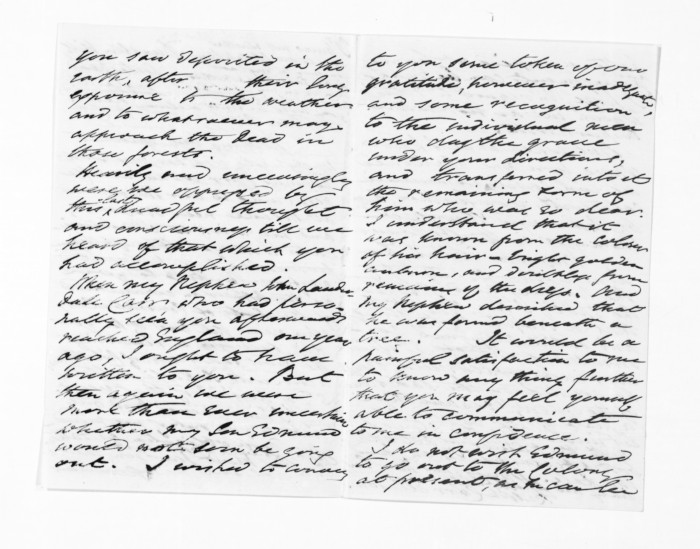 you saw deposited in the
earth, after their long
exposure to the weather
and to whatsoever may
approach the dead in
those forests.
Heavily and unceasingly
were we oppressed by
this last dreadful thought
and consciousness, till we
heard of that which you
had accomplished.
When my Nephew John Lauder
dale Carr who had perso-
nally seen you afterwards
reached England one year
ago, I ought to have
written to you. But
then again we were
more than ever uncertain
whether my Son Edmund
would not soon be going
out. I wished to convey
to you some token of our
gratitude, however inadequate,
and some recognition
to the individual men
who dug the grave
under your directions,
and transferred into it
the remaining form of
him who was so dear.
I understand that it
was known from the colour
of his hair - bright golden
auburn, and doubtless from
remains of the dress. And
my Nephew described that
he was found beneath a
tree. It would be a
painful satisfaction to me
to know any thing further
that you may feel yourself
able to communicate
to me in confidence.
I do not wish Edmund
to go out to the Colony
at present, as he can be